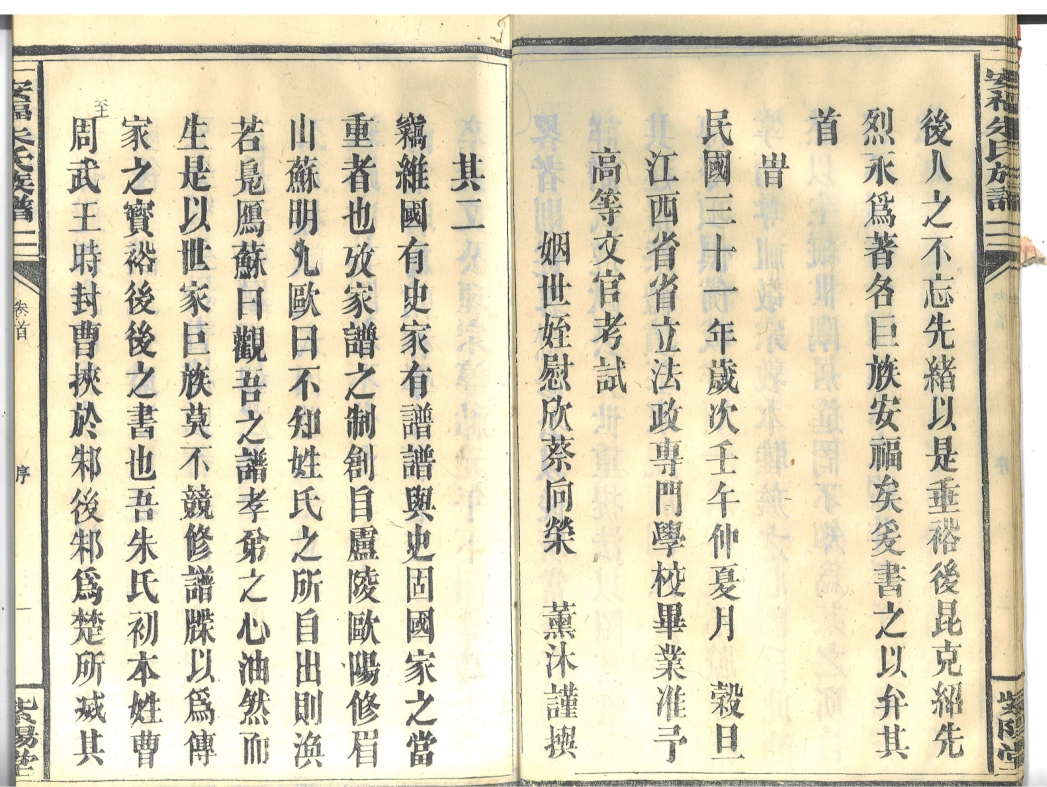 安福朱氏族譜
紫陽堂
後人之不忘先緒以是垂裕後昆克紹先
烈永爲著各巨族安福矣爰書之以弁其
首
旹
民國三十一年歲次壬午仲夏月 榖旦
江西省省立法政專門學校畢業准予
高等文官考試
姻世姪慰欣蔡向榮 薰沐謹撰
其二
竊維國有史家有譜譜與史固國家之當
重者也攷家譜之制創自廬陵歐陽修眉
山蘇明允歐曰不知姓氏之所自出則渙
若鳧鴈蘇曰觀吾之譜孝弟之心油然而
生是以世家巨族莫不競修譜牒以爲傳
家之寳裕後後之書也吾朱氏初本姓曹
至
周武王時封曹挾於邾後邾爲楚所滅其
安福朱氏族譜
卷首
序
一
紫陽堂